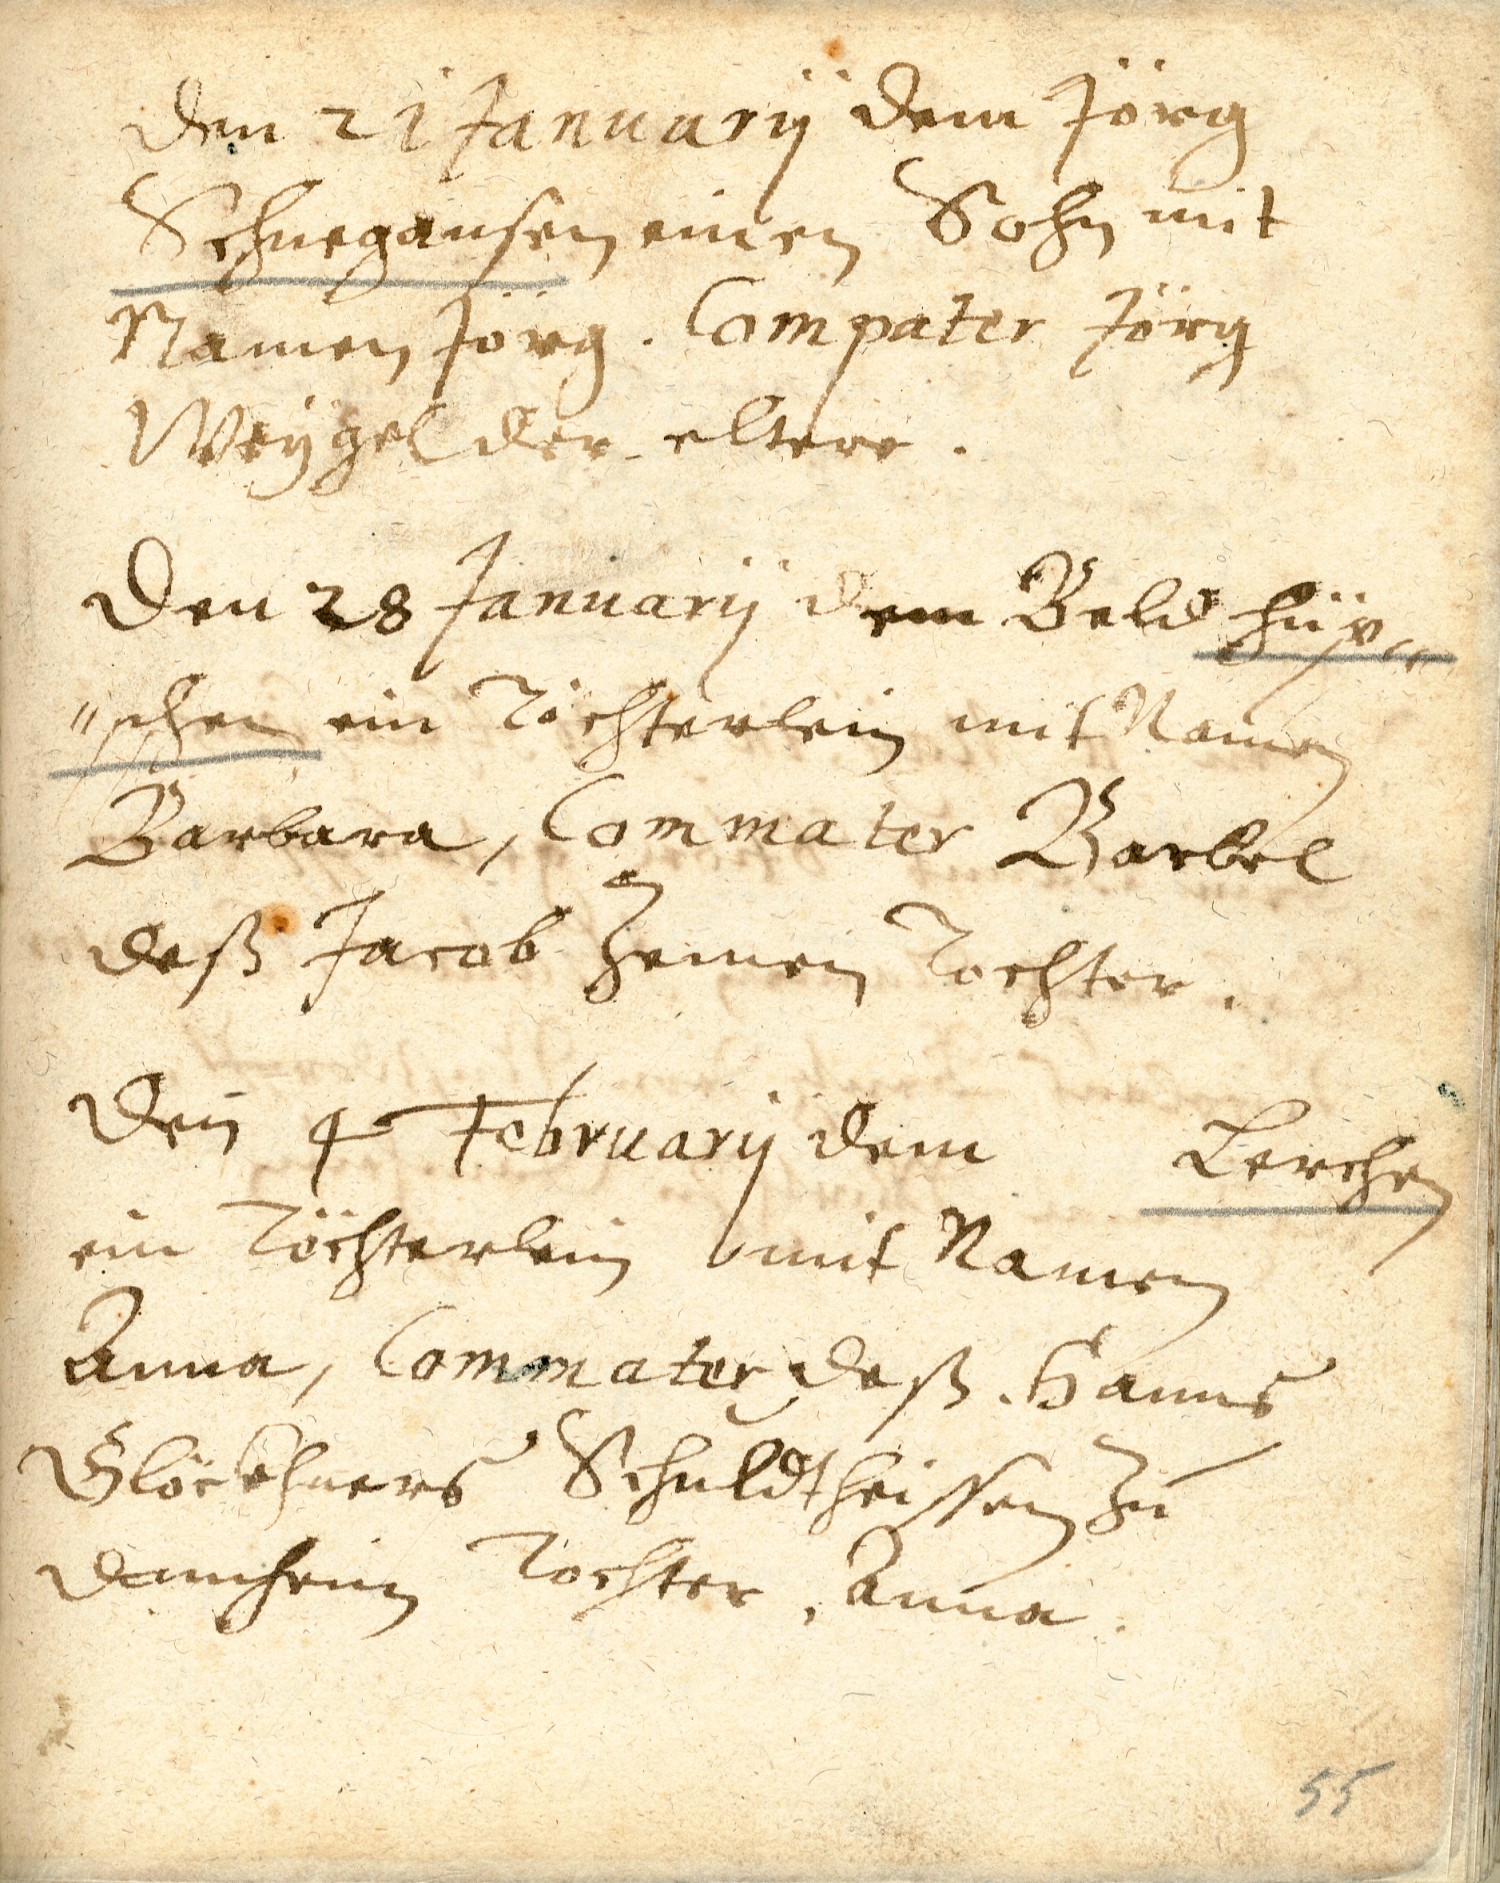 Den 21 Januarij dem Jörg
Schnegansen einen Sohn mit
Namen Jörg. Compater Jörg
Weÿgel der eltere.
Den 28 Januarij dem Beld Hüp„
„schen ein Töchterlein mit Namen
Barbara, Commater Barbel
deß Jacob Zemen Tochter.
Den 4 Februarij dem Lerchen
ein Töchterlein mit Namen
Anna, Commater deß Hanns
Glöckhners Schuldtheissen zu
Damheim Tochter, Anna.
55